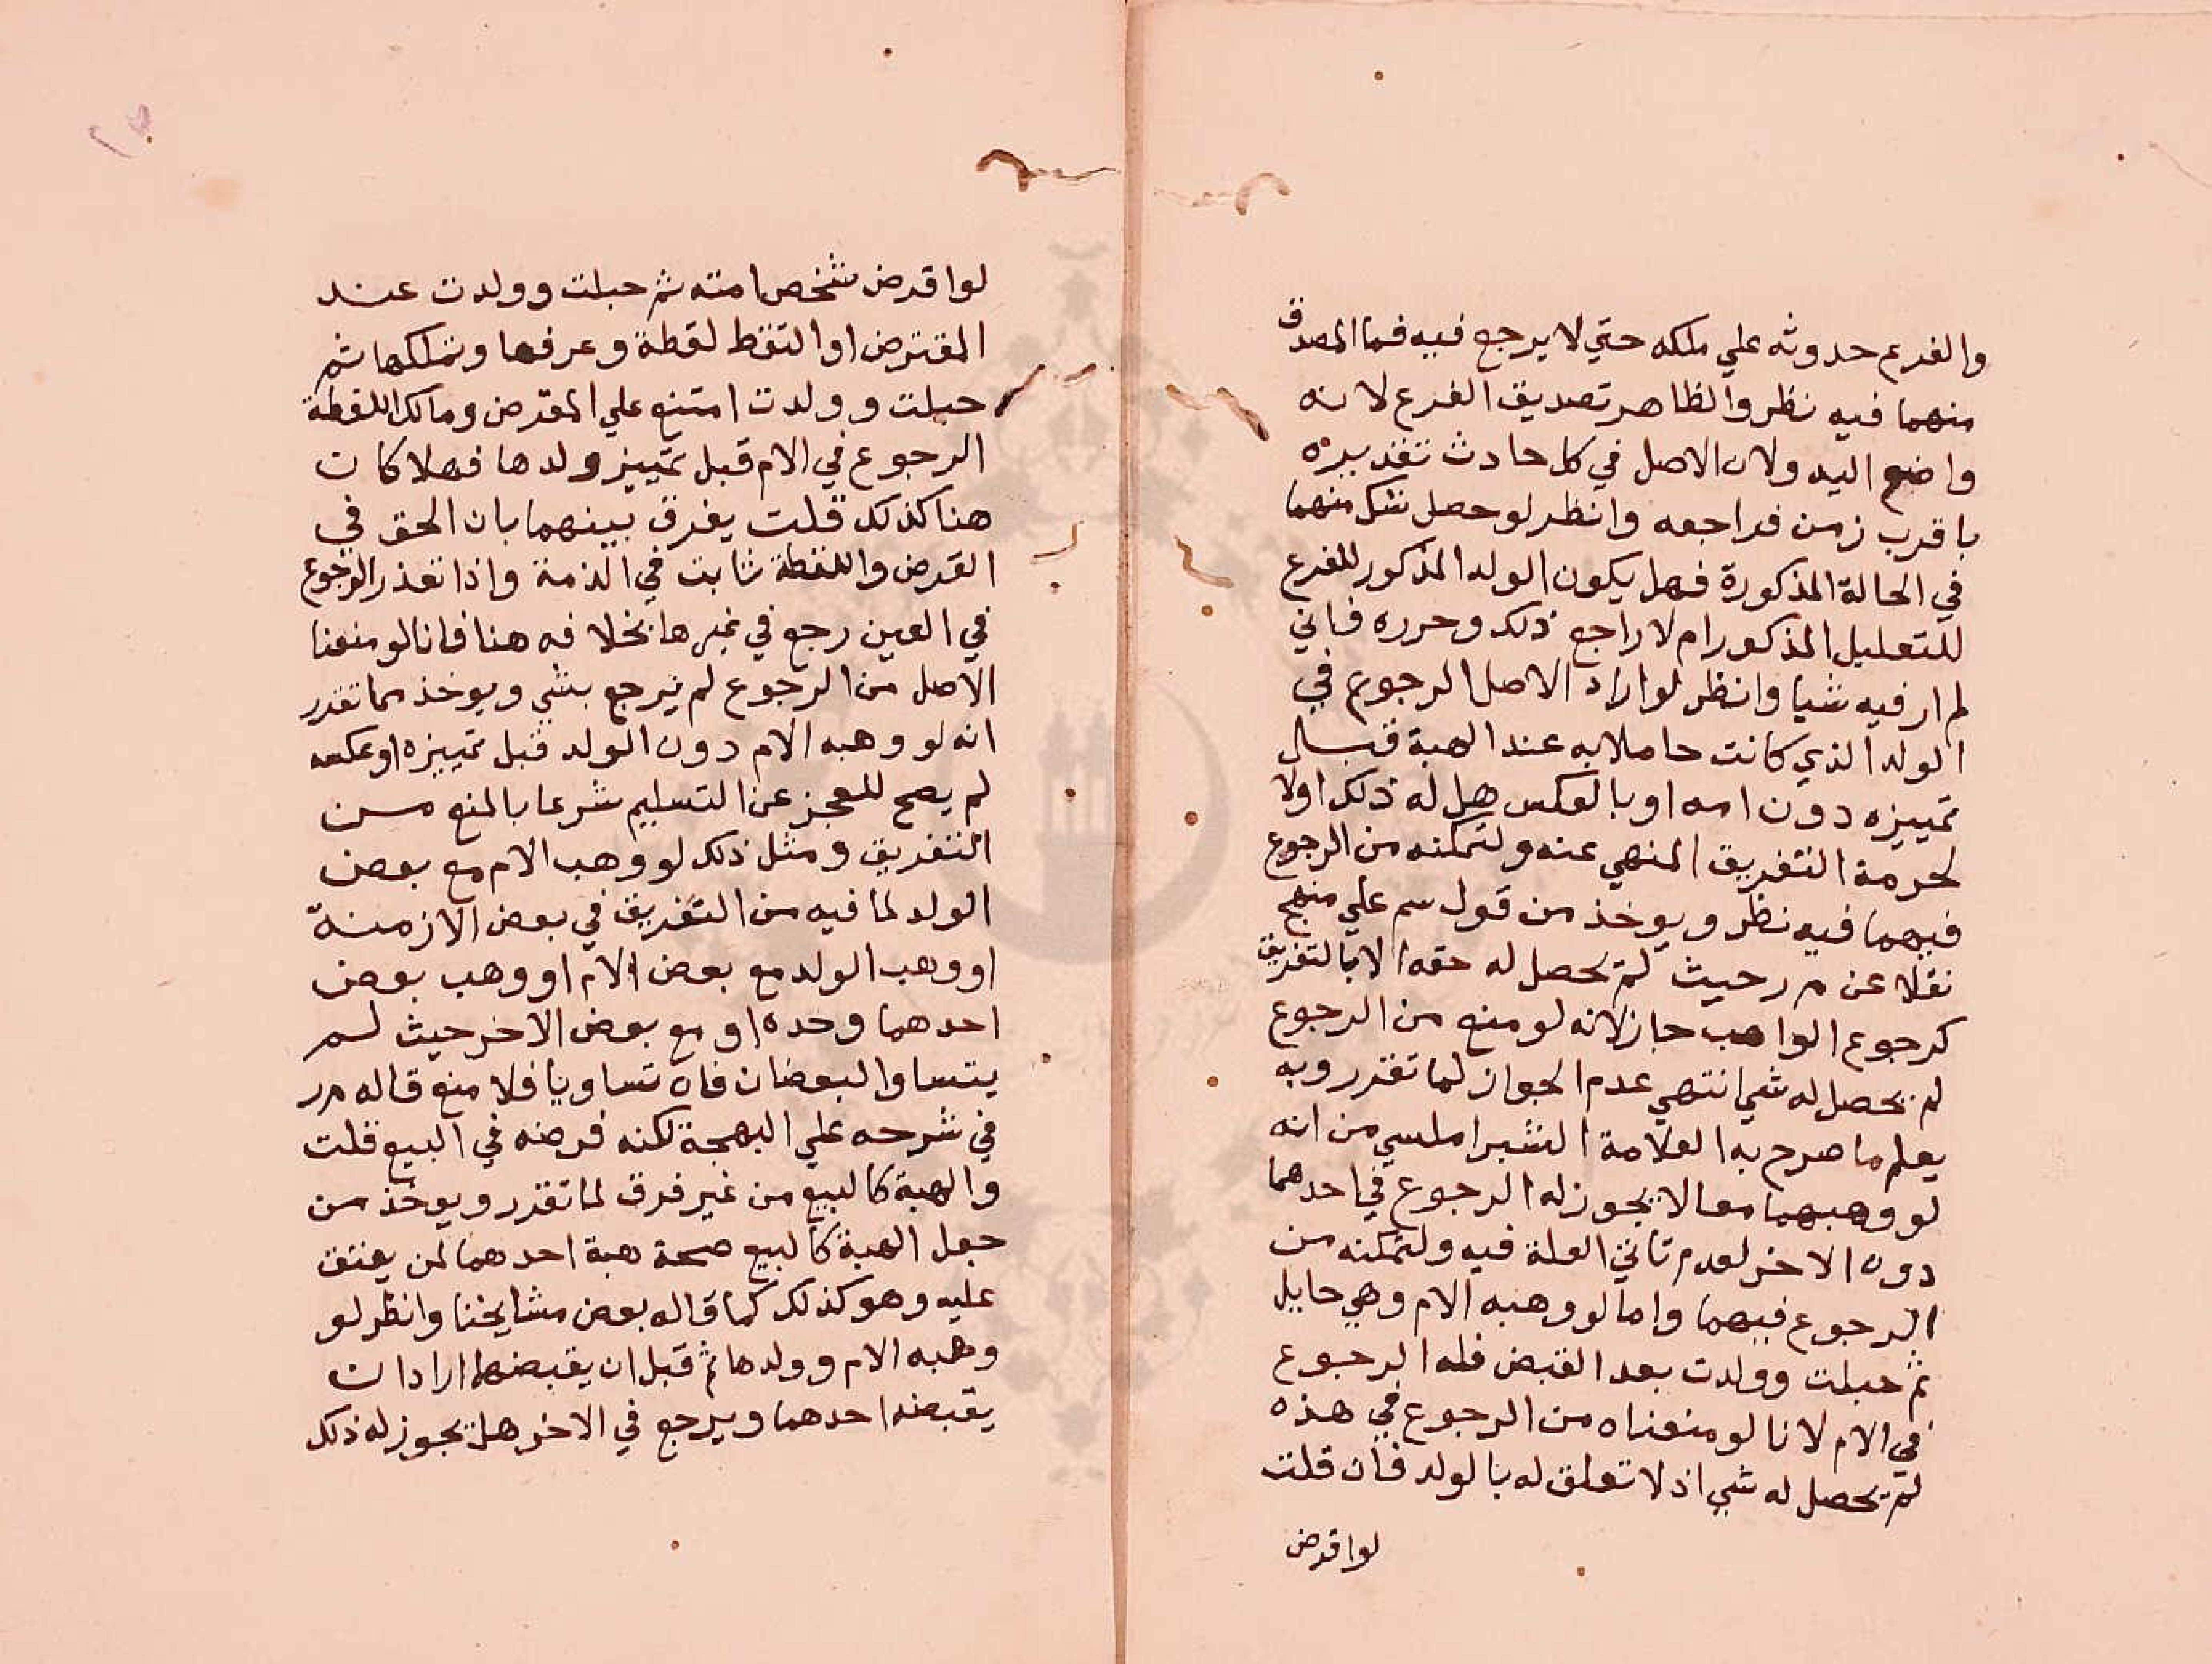 والفرع حدوثه علي ملكه حتي لا يرجع فيه فما المصدق
منهما فيه نظر والظاهر تصديق الفرع لانه
واضع اليد ولان الاصل في كل حادث تقديره
باقرب زمن فراجعه وانظر لو حصل شك منهما
في الحالة المذكورة فهل يكون الولد المذكور للفرع
للتعليل المذكور ام لا راجع ذلك وحرره فاني
لم ار فيه شيا وانظر لو اراد الاصل الرجوع في
الولد الذي كانت حاملا به عند الهبة قبل
تمييزه دون امه او بالعكس هل له ذلك اولا
لحرمة التفريق المنهي عنه ولتمكنه من الرجوع
فيهما فيه نظر ويوخذ من قول سم علي منهج
نقلا عن م ر حيث لم يحصل له حقه الا بالتفريق
كرجوع الواهب جاز لانه لو منع من الرجوع
لم يحصل له شي انتهي عدم الجواز لما تقرر وبه
يعلم ما صرح به العلامة الشبراملسي من انه
لو وهبهما معا لا يجوز له الرجوع في احدهما
دون الاخر لعدم تاتي العلة فيه ولتمكنه من
الرجوع فيهما واما لو وهبه الام وهي حايل
ثم حبلت وولدت بعد القبض فله الرجوع
في الام لانا لو منعناه من الرجوع في هذه
لم يحصل له شي اذ لا تعلق له بالولد فان قلت
لو اقرض
لو اقرض شخص امته ثم حبلت وولدت عند
المقترض او التقط لقطة وعرفها وتملكها ثم
حبلت وولدت امتنع علي المقرض ومالك اللقطة
الرجوع في الام قبل تمييز ولدها فهلا كان
هنا كذلك قلت يفرق بينهما بان الحق في
القرض واللقطة ثابت في الذمة واذا تعذر الرجوع
في العين رجع في غيرها بخلافه هنا فانا لو منعنا
الاصل من الرجوع لم يرجع بشي ويوخذ مما تقرر
انه لو وهبه الام دون الولد قبل تمييزه او عكسه
لم يصح للعجز عن التسليم شرعا بالمنع من
التفريق ومثل ذلك لو وهب الام مع بعض
الولد لما فيه من التفريق في بعض الازمنة
او وهب الولد مع بعض الام او وهب بعض
احدهما وحده او مع بعض الاخر حيث لم
يتساو البعضان فان تساويا فلا منع قاله م ر
في شرحه علي البهجة لكنه فرضه في البيع قلت
والهبة كالبيع من غير فرق لما تقرر ويوخذ من
جعل الهبة كالبيع صحة هبة احدهما لمن يعتق
عليه وهو كذلك كما قاله بعض مشايخنا وانظر لو
وهبه الام وولدها ثم قبل ان يقبضهما اراد ان
يقبضه احدهما ويرجع في الاخر هل يجوز له ذلك